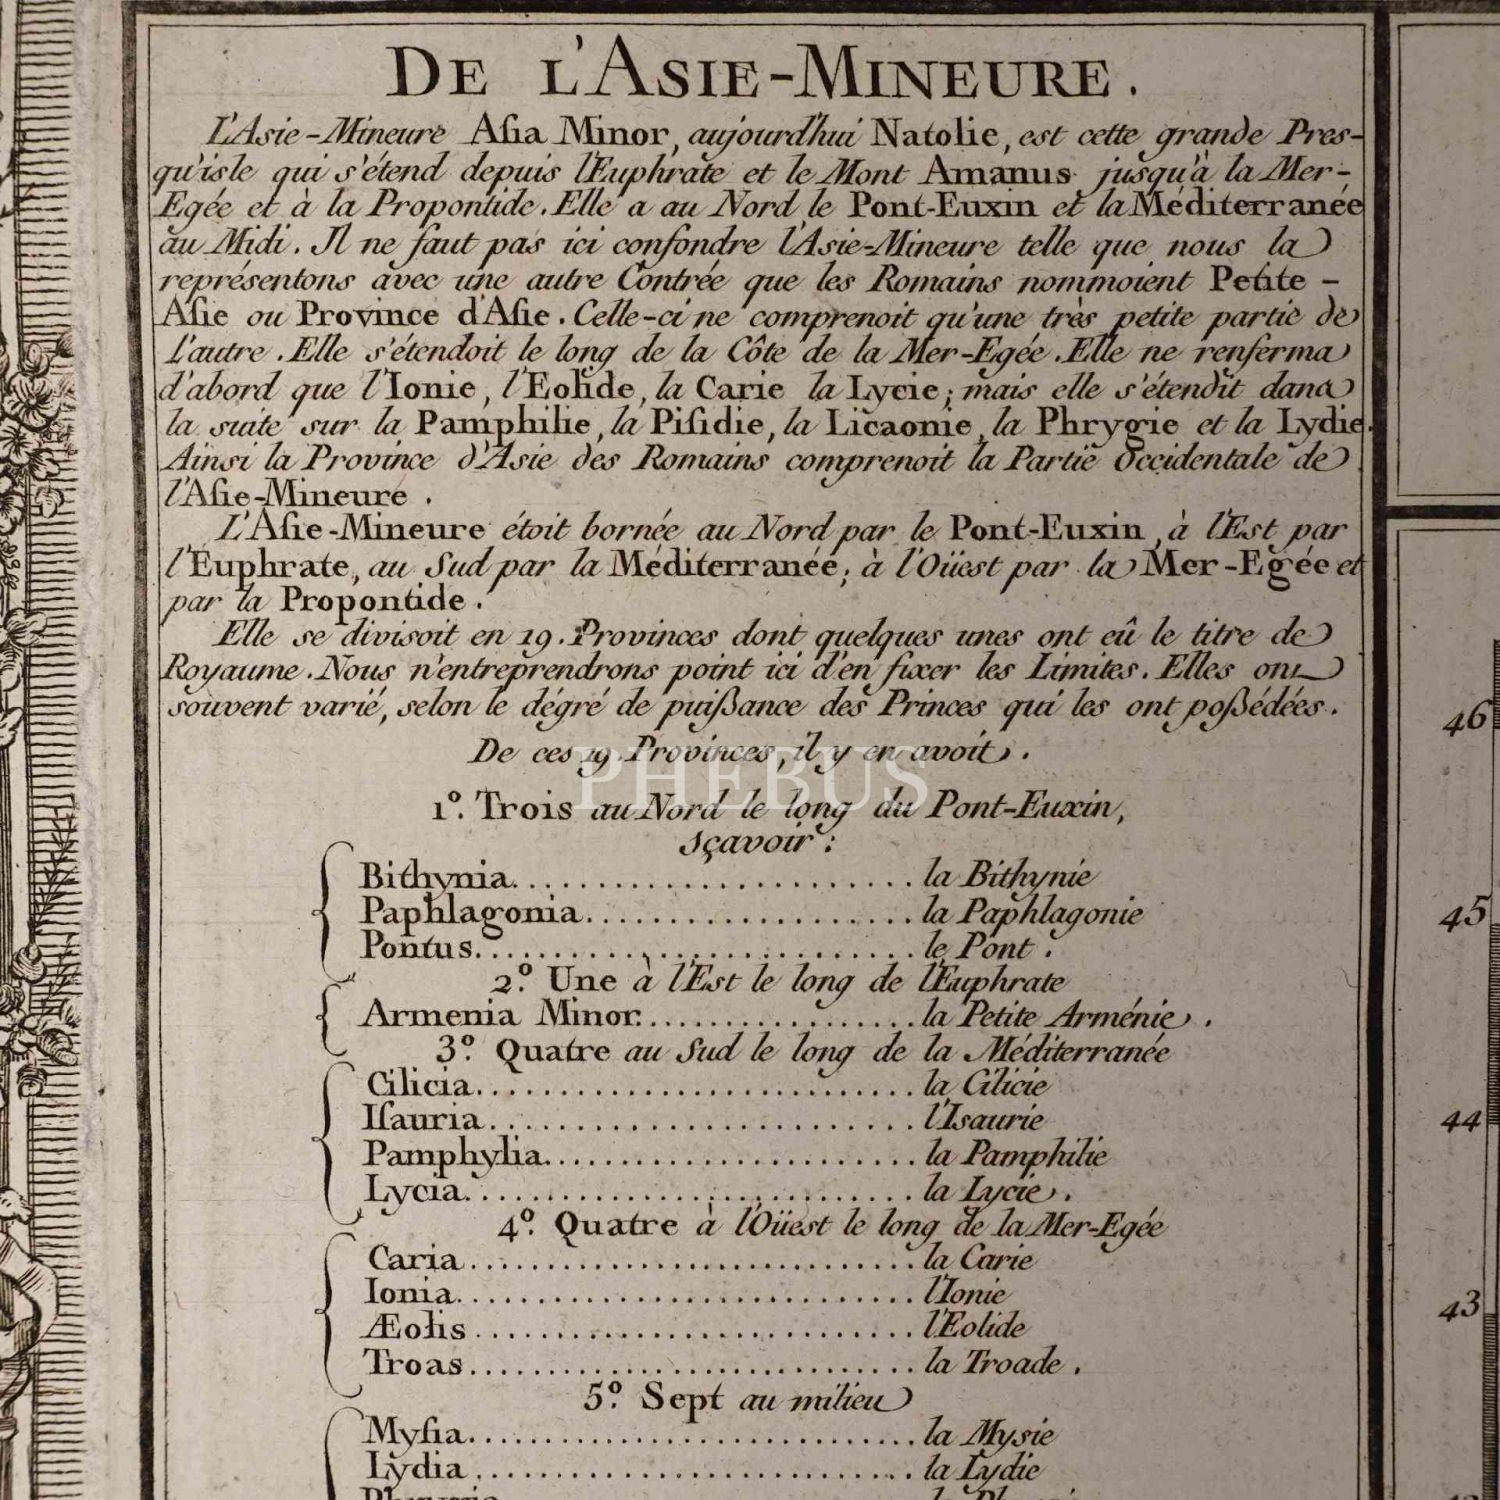 DE L'ASIE-MINEURE.
L'Asie-Mineure Aſia Minor, aujourd'hui Natolie, est cette grande Pres-
qu'isle qui s'étend depuis l'Euphrate et le Mont Amanus jusqu'à la Mer-
Egée et à la Propontide. Elle a au Nord le Pont-Euxin et la Méditerranée
au Midi. Il ne faut pas ici confondre l'Asie-Mineure telle que nous la
représentons avec une autre Contrée que les Romains nommoient Petite-
Aſie ou Province d'Aſie. Celle-ci ne comprenoit qu'une très petite partie de
l'autre. Elle s'étendoit le long de la Côte de la Mer-Egée. Elle ne renferma
d'abord que l'Ionie, l'Eolide, la Carie la Lycie; mais elle s'étendit dans
la suite sur la Pamphilie, la Piſidie, la Licaonie, la Phrygie et la Lydie.
Ainsi la Province d'Asie des Romains comprenoit la Partie Occidentale de
l'Aſie-Mineure.
L'Aſie-Mineure étoit bornée au Nord par le Pont-Euxin, à l'Est par
l'Euphrate, au Sud par la Méditerranée; à l'Oüest par la Mer-Egée et
par la Propontide.
Elle se divisoit en 19. Provinces dont quelques unes ont eû le titre de
Royaume. Nous n'entreprendrons point ici d'en fixer les Limites. Elles ont
souvent varié, selon le dégré de puißance des Princes qui les ont poßédées.
De ces 19. Provinces, il y en avoit.
PHEBUS
1º. Trois au Nord le long du Pont-Euxin,
sçavoir:
Bithynia........................la Bithynie
Paphlagonia....................la Paphlagonie
Pontus...........................le Pont.
2º. Une à l'Est le long de l'Euphrate
Armenia Minor.................la Petite Arménie.
3º. Quatre au Sud le long de la Méditerranée
Cilicia...........................la Cilicie
Iſauria..........................l'Isaurie
Pamphylia.......................la Pamphilie
Lycia............................la Lycie.
4º. Quatre à l'Oüest le long de la Mer-Egée
Caria............................la Carie
Ionia............................l'Ionie
Æolis...........................l'Eolide
Troas...........................la Troade.
5º. Sept au milieu
Myſia...........................la Mysie
Lydia...........................la Lydie
46
45
44
43